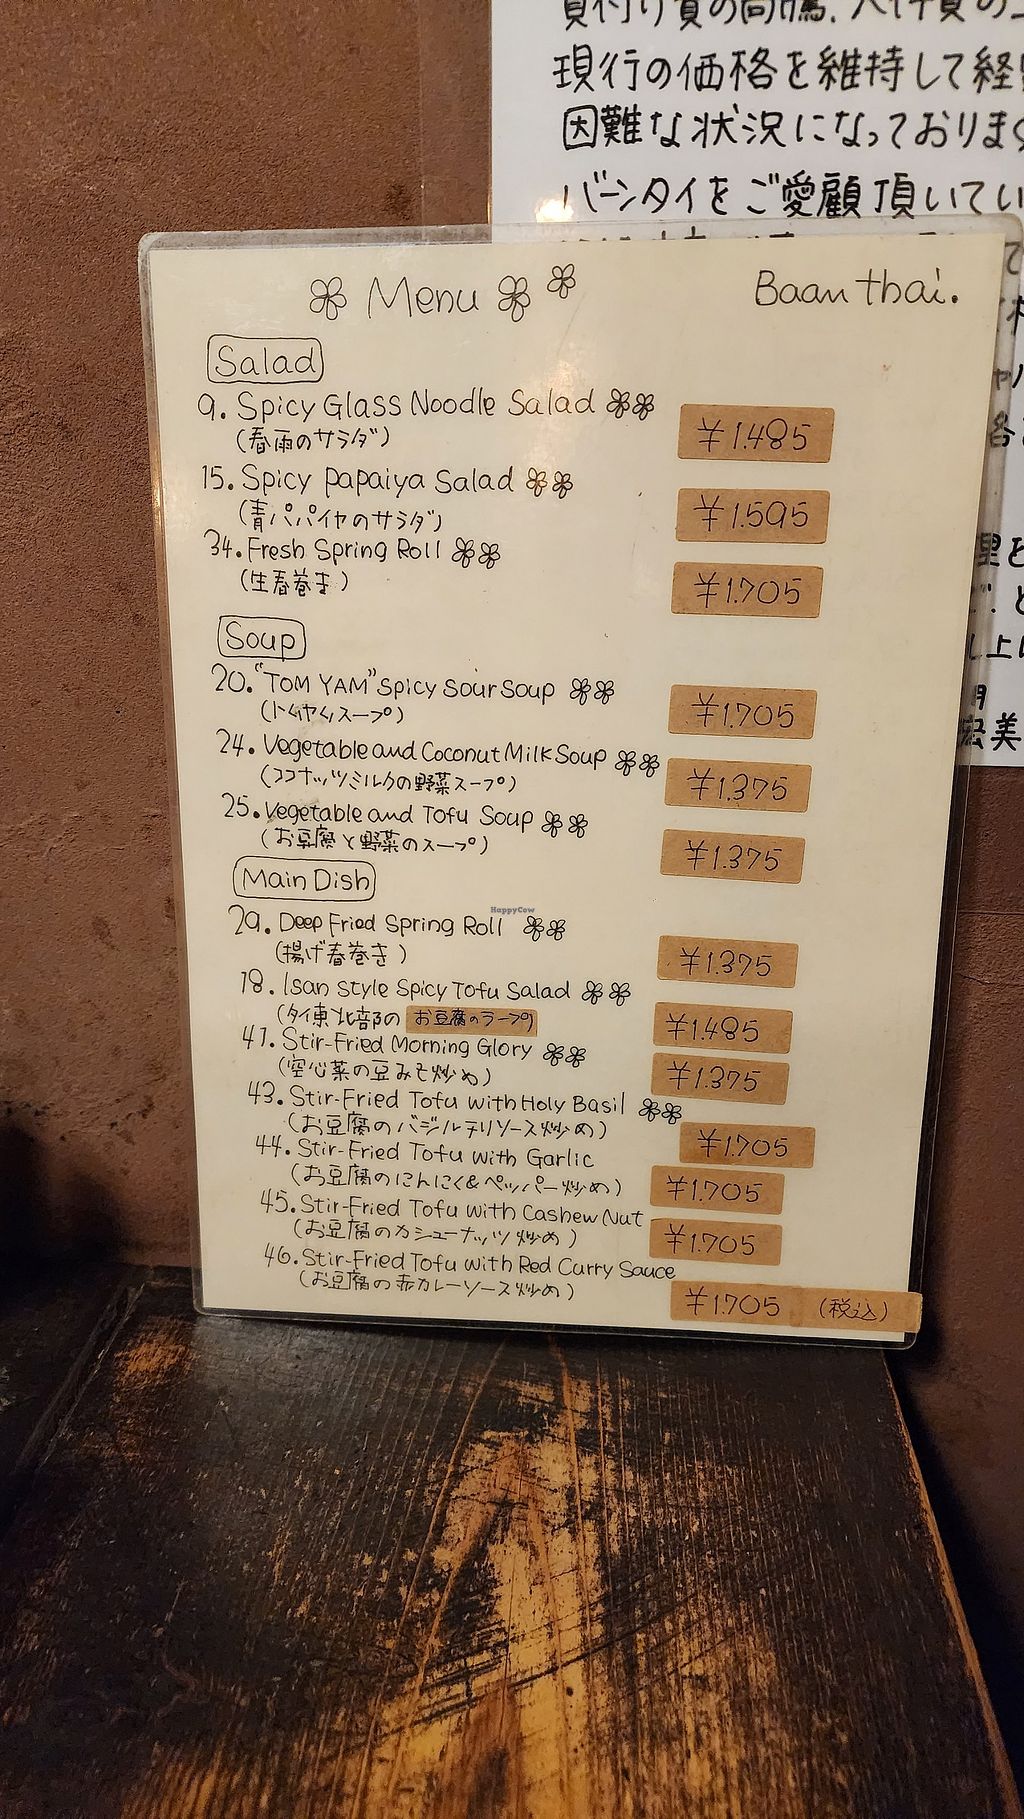 現行の価格を維持して経
困難な状況になっており
バーンタイをご愛顧頂いてい
Menu
Baan thai.
Salad
9. Spicy Glass Noodle Salad
¥1.485
(春雨のサラダ)
15. Spicy Papaiya Salad
¥1.595
(青パパイヤのサラダ)
34. Fresh Spring Roll
¥1.705
(生春巻き)
Soup
20. "TOM YAM" Spicy Sour Soup
¥1.705
(トムヤムスープ)
24. Vegetable and Coconut Milk Soup
¥1.375
(ココナッツミルクの野菜スープ)
25. Vegetable and Tofu Soup
¥1.375
(お豆腐と野菜のスープ)
Main Dish
HappyCow
29. Deep Fried Spring Roll
¥1.375
(揚げ春巻き)
18. Isan Style Spicy Tofu Salad
¥1.485
(タイ東北部の お豆腐のラープ)
41. Stir-Fried Morning Glory
¥1.375
(空心菜の豆みそ炒め)
43. Stir-Fried Tofu with Holy Basil
¥1.705
(お豆腐のバジルチリソース炒め)
44. Stir-Fried Tofu with Garlic
¥1.705
(お豆腐のにんにく&ペッパー炒め)
45. Stir-Fried Tofu with Cashew Nut
¥1.705
(お豆腐のカシューナッツ炒め)
46. Stir-Fried Tofu with Red Curry Sauce
¥1.705 (税込)
(お豆腐の赤カレーソース炒め)